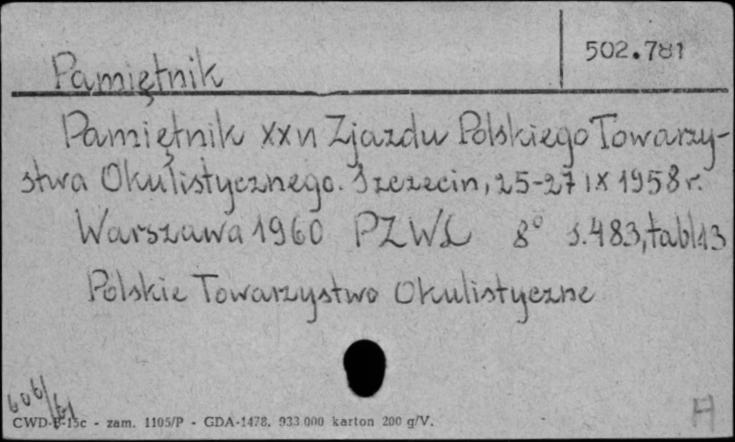 502.781
Pamiętnik
Pamiętnik XXVI Zjazdu Polskiego Towarzy-
stwa Okulistycznego. Szczecin, 25-27 IX 1958 r.
Warszawa 1960 PZWL 8° s. 483, tabl. 13
Polskie Towarzystwo Okulistyczne
606/61
CWD-F-15c - zam. 1105/P - GDA-1478. 933 000 karton 200 g/V.
H